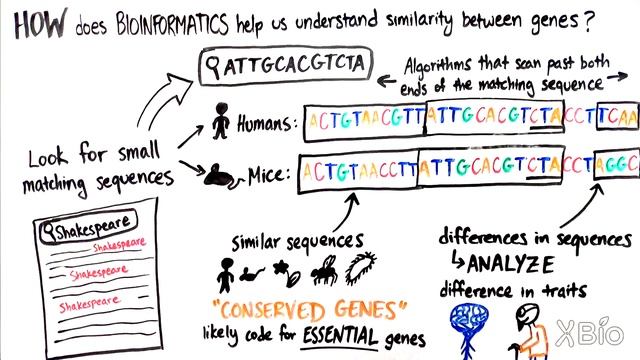 HOW does BIOINFORMATICS help us understand similarity between genes?
ATTGCACGTCTA
Algorithms that scan past both
ends of the matching sequence
Humans: ACTGTAACGTTATTGCACGTCTACCTTCAA
Look for small
matching sequences
Mice: ACTGTAACCTTATTGCACGTCTACCTAGGC
Shakespeare
Shakespeare
Shakespeare
Shakespeare
similar sequences
"CONSERVED GENES"
likely code for ESSENTIAL genes
differences in sequences
ANALYZE
difference in traits
XBio